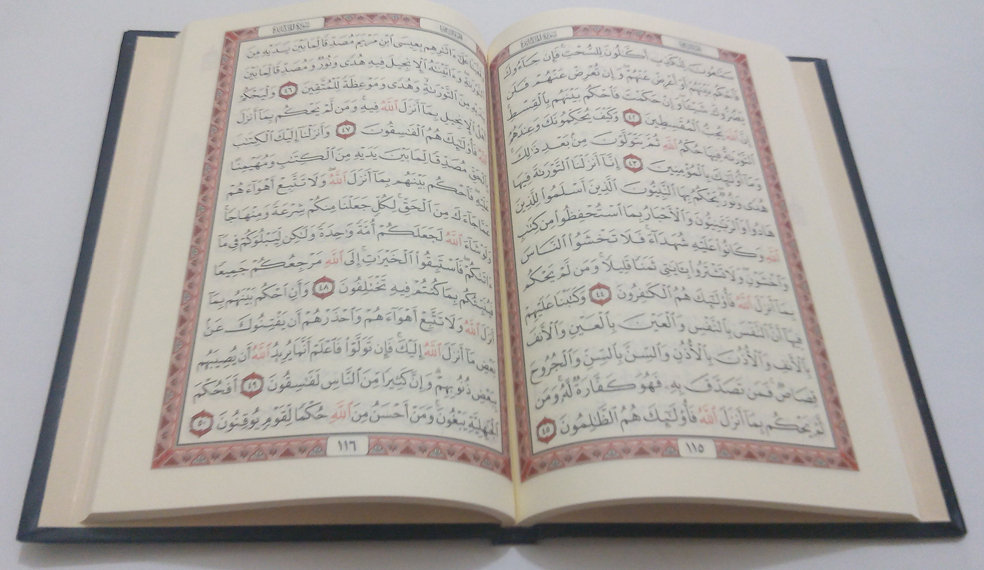 سَمَّٰعُونَ لِلْكَذِبِ أَكَّٰلُونَ لِلسُّحْتِ فَإِن جَآءُوكَ
فَٱحْكُم بَيْنَهُمْ أَوْ أَعْرِضْ عَنْهُمْ وَإِن تُعْرِضْ عَنْهُمْ فَلَن
يَضُرُّوكَ شَيْـًٔا وَإِنْ حَكَمْتَ فَٱحْكُم بَيْنَهُم بِٱلْقِسْطِ
إِنَّ ٱللَّهَ يُحِبُّ ٱلْمُقْسِطِينَ ٤٢ وَكَيْفَ يُحَكِّمُونَكَ وَعِندَهُمُ
ٱلتَّوْرَىٰةُ فِيهَا حُكْمُ ٱللَّهِ ثُمَّ يَتَوَلَّوْنَ مِنۢ بَعْدِ ذَٰلِكَ
وَمَآ أُو۟لَٰٓئِكَ بِٱلْمُؤْمِنِينَ ٤٣ إِنَّآ أَنزَلْنَا ٱلتَّوْرَىٰةَ فِيهَا
هُدًى وَنُورٌ يَحْكُمُ بِهَا ٱلنَّبِيُّونَ ٱلَّذِينَ أَسْلَمُوا۟ لِلَّذِينَ
هَادُوا۟ وَٱلرَّبَّٰنِيُّونَ وَٱلْأَحْبَارُ بِمَا ٱسْتُحْفِظُوا۟ مِن كِتَٰبِ
ٱللَّهِ وَكَانُوا۟ عَلَيْهِ شُهَدَآءَ فَلَا تَخْشَوُا۟ ٱلنَّاسَ
وَٱخْشَوْنِ وَلَا تَشْتَرُوا۟ بِـَٔايَٰتِى ثَمَنًا قَلِيلًا وَمَن لَّمْ يَحْكُم
بِمَآ أَنزَلَ ٱللَّهُ فَأُو۟لَٰٓئِكَ هُمُ ٱلْكَٰفِرُونَ ٤٤ وَكَتَبْنَا عَلَيْهِمْ
فِيهَآ أَنَّ ٱلنَّفْسَ بِٱلنَّفْسِ وَٱلْعَيْنَ بِٱلْعَيْنِ وَٱلْأَنفَ
بِٱلْأَنفِ وَٱلْأُذُنَ بِٱلْأُذُنِ وَٱلسِّنَّ بِٱلسِّنِّ وَٱلْجُرُوحَ
قِصَاصٌ فَمَن تَصَدَّقَ بِهِۦ فَهُوَ كَفَّارَةٌ لَّهُۥ وَمَن
لَّمْ يَحْكُم بِمَآ أَنزَلَ ٱللَّهُ فَأُو۟لَٰٓئِكَ هُمُ ٱلظَّٰلِمُونَ ٤٥
١١٥
وَقَفَّيْنَا عَلَىٰٓ ءَاثَٰرِهِم بِعِيسَى ٱبْنِ مَرْيَمَ مُصَدِّقًا لِّمَا بَيْنَ يَدَيْهِ مِنَ
ٱلتَّوْرَىٰةِ وَءَاتَيْنَٰهُ ٱلْإِنجِيلَ فِيهِ هُدًى وَنُورٌ وَمُصَدِّقًا لِّمَا بَيْنَ
يَدَيْهِ مِنَ ٱلتَّوْرَىٰةِ وَهُدًى وَمَوْعِظَةً لِّلْمُتَّقِينَ ٤٦ وَلْيَحْكُمْ
أَهْلُ ٱلْإِنجِيلِ بِمَآ أَنزَلَ ٱللَّهُ فِيهِ وَمَن لَّمْ يَحْكُم بِمَآ أَنزَلَ
ٱللَّهُ فَأُو۟لَٰٓئِكَ هُمُ ٱلْفَٰسِقُونَ ٤٧ وَأَنزَلْنَآ إِلَيْكَ ٱلْكِتَٰبَ
بِٱلْحَقِّ مُصَدِّقًا لِّمَا بَيْنَ يَدَيْهِ مِنَ ٱلْكِتَٰبِ وَمُهَيْمِنًا
عَلَيْهِ فَٱحْكُم بَيْنَهُم بِمَآ أَنزَلَ ٱللَّهُ وَلَا تَتَّبِعْ أَهْوَآءَهُمْ
عَمَّا جَآءَكَ مِنَ ٱلْحَقِّ لِكُلٍّ جَعَلْنَا مِنكُمْ شِرْعَةً وَمِنْهَاجًا
وَلَوْ شَآءَ ٱللَّهُ لَجَعَلَكُمْ أُمَّةً وَٰحِدَةً وَلَٰكِن لِّيَبْلُوَكُمْ فِى مَآ
ءَاتَىٰكُمْ فَٱسْتَبِقُوا۟ ٱلْخَيْرَٰتِ إِلَى ٱللَّهِ مَرْجِعُكُمْ جَمِيعًا
فَيُنَبِّئُكُم بِمَا كُنتُمْ فِيهِ تَخْتَلِفُونَ ٤٨ وَأَنِ ٱحْكُم بَيْنَهُم بِمَآ
أَنزَلَ ٱللَّهُ وَلَا تَتَّبِعْ أَهْوَآءَهُمْ وَٱحْذَرْهُمْ أَن يَفْتِنُوكَ عَنۢ
بَعْضِ مَآ أَنزَلَ ٱللَّهُ إِلَيْكَ فَإِن تَوَلَّوْا۟ فَٱعْلَمْ أَنَّمَا يُرِيدُ ٱللَّهُ أَن يُصِيبَهُم
بِبَعْضِ ذُنُوبِهِمْ وَإِنَّ كَثِيرًا مِّنَ ٱلنَّاسِ لَفَٰسِقُونَ ٤٩ أَفَحُكْمَ
ٱلْجَٰهِلِيَّةِ يَبْغُونَ وَمَنْ أَحْسَنُ مِنَ ٱللَّهِ حُكْمًا لِّقَوْمٍ يُوقِنُونَ ٥٠
١١٦